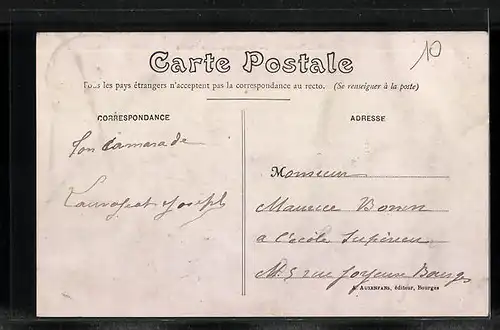 10
Carte Postale
Tous les pays étrangers n'acceptent pas la correspondance au recto. (Se renseigner à la poste)
CORRESPONDANCE
ADRESSE
Ton Camarade
Joseph
Monsieur
Maurice
a l'école Supérieur
5 rue Joyeuse Bourges
A. AUXENFANS, éditeur, Bourges